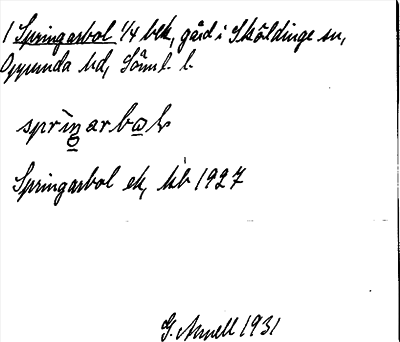 1 Springarbol 1/4 blk, gård i Sköldinge sn,
Oppunda hd, Söml. l.
sprìŋarbωl
Springarbol ek, kb 1927
G. Amell 1931